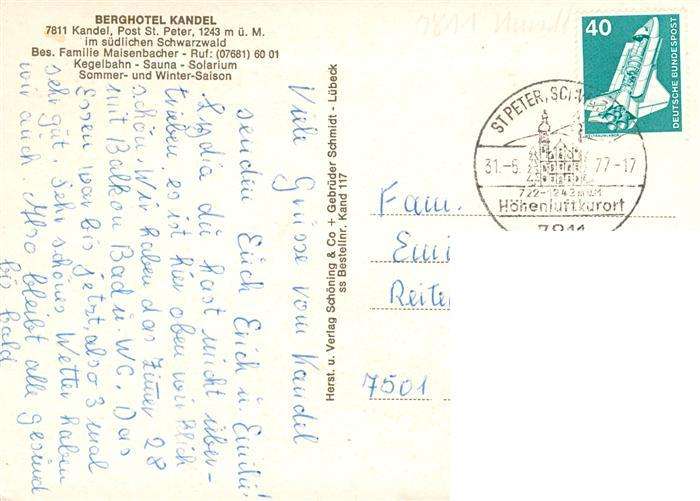 BERGHOTEL KANDEL
7811 Kandel, Post St. Peter, 1243 m ü. M.
im südlichen Schwarzwald
Bes. Familie Maisenbacher - Ruf: (07681) 60 01
Kegelbahn - Sauna - Solarium
Sommer- und Winter-Saison
Viele Grüsse vom Kandel
senden Euch Erich u. Emilie!
Lydia du hast nicht über-
trieben es ist hier oben wirklich
schön. Wir haben das Zimer 28
mit Balkon Bad u. WC. Das
Essen war bis jetzt, also 3 mal
sehr gut. Sehr schönes Wetter haben
wir auch. Also bleibt alle gesund
bis bald
Herst. u. Verlag Schöning & Co + Gebrüder Schmidt - Lübeck
ss Bestellnr. Kand 117
40
DEUTSCHE BUNDESPOST
ST PETER, SCHW
31.-5. 77-17
722-1243 m ü M
Höhenluftkurort
7811
Fam.
Emi
Reite
7501